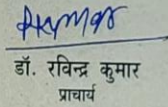 डॉ. रविन्द्र कुमार
प्राचार्य